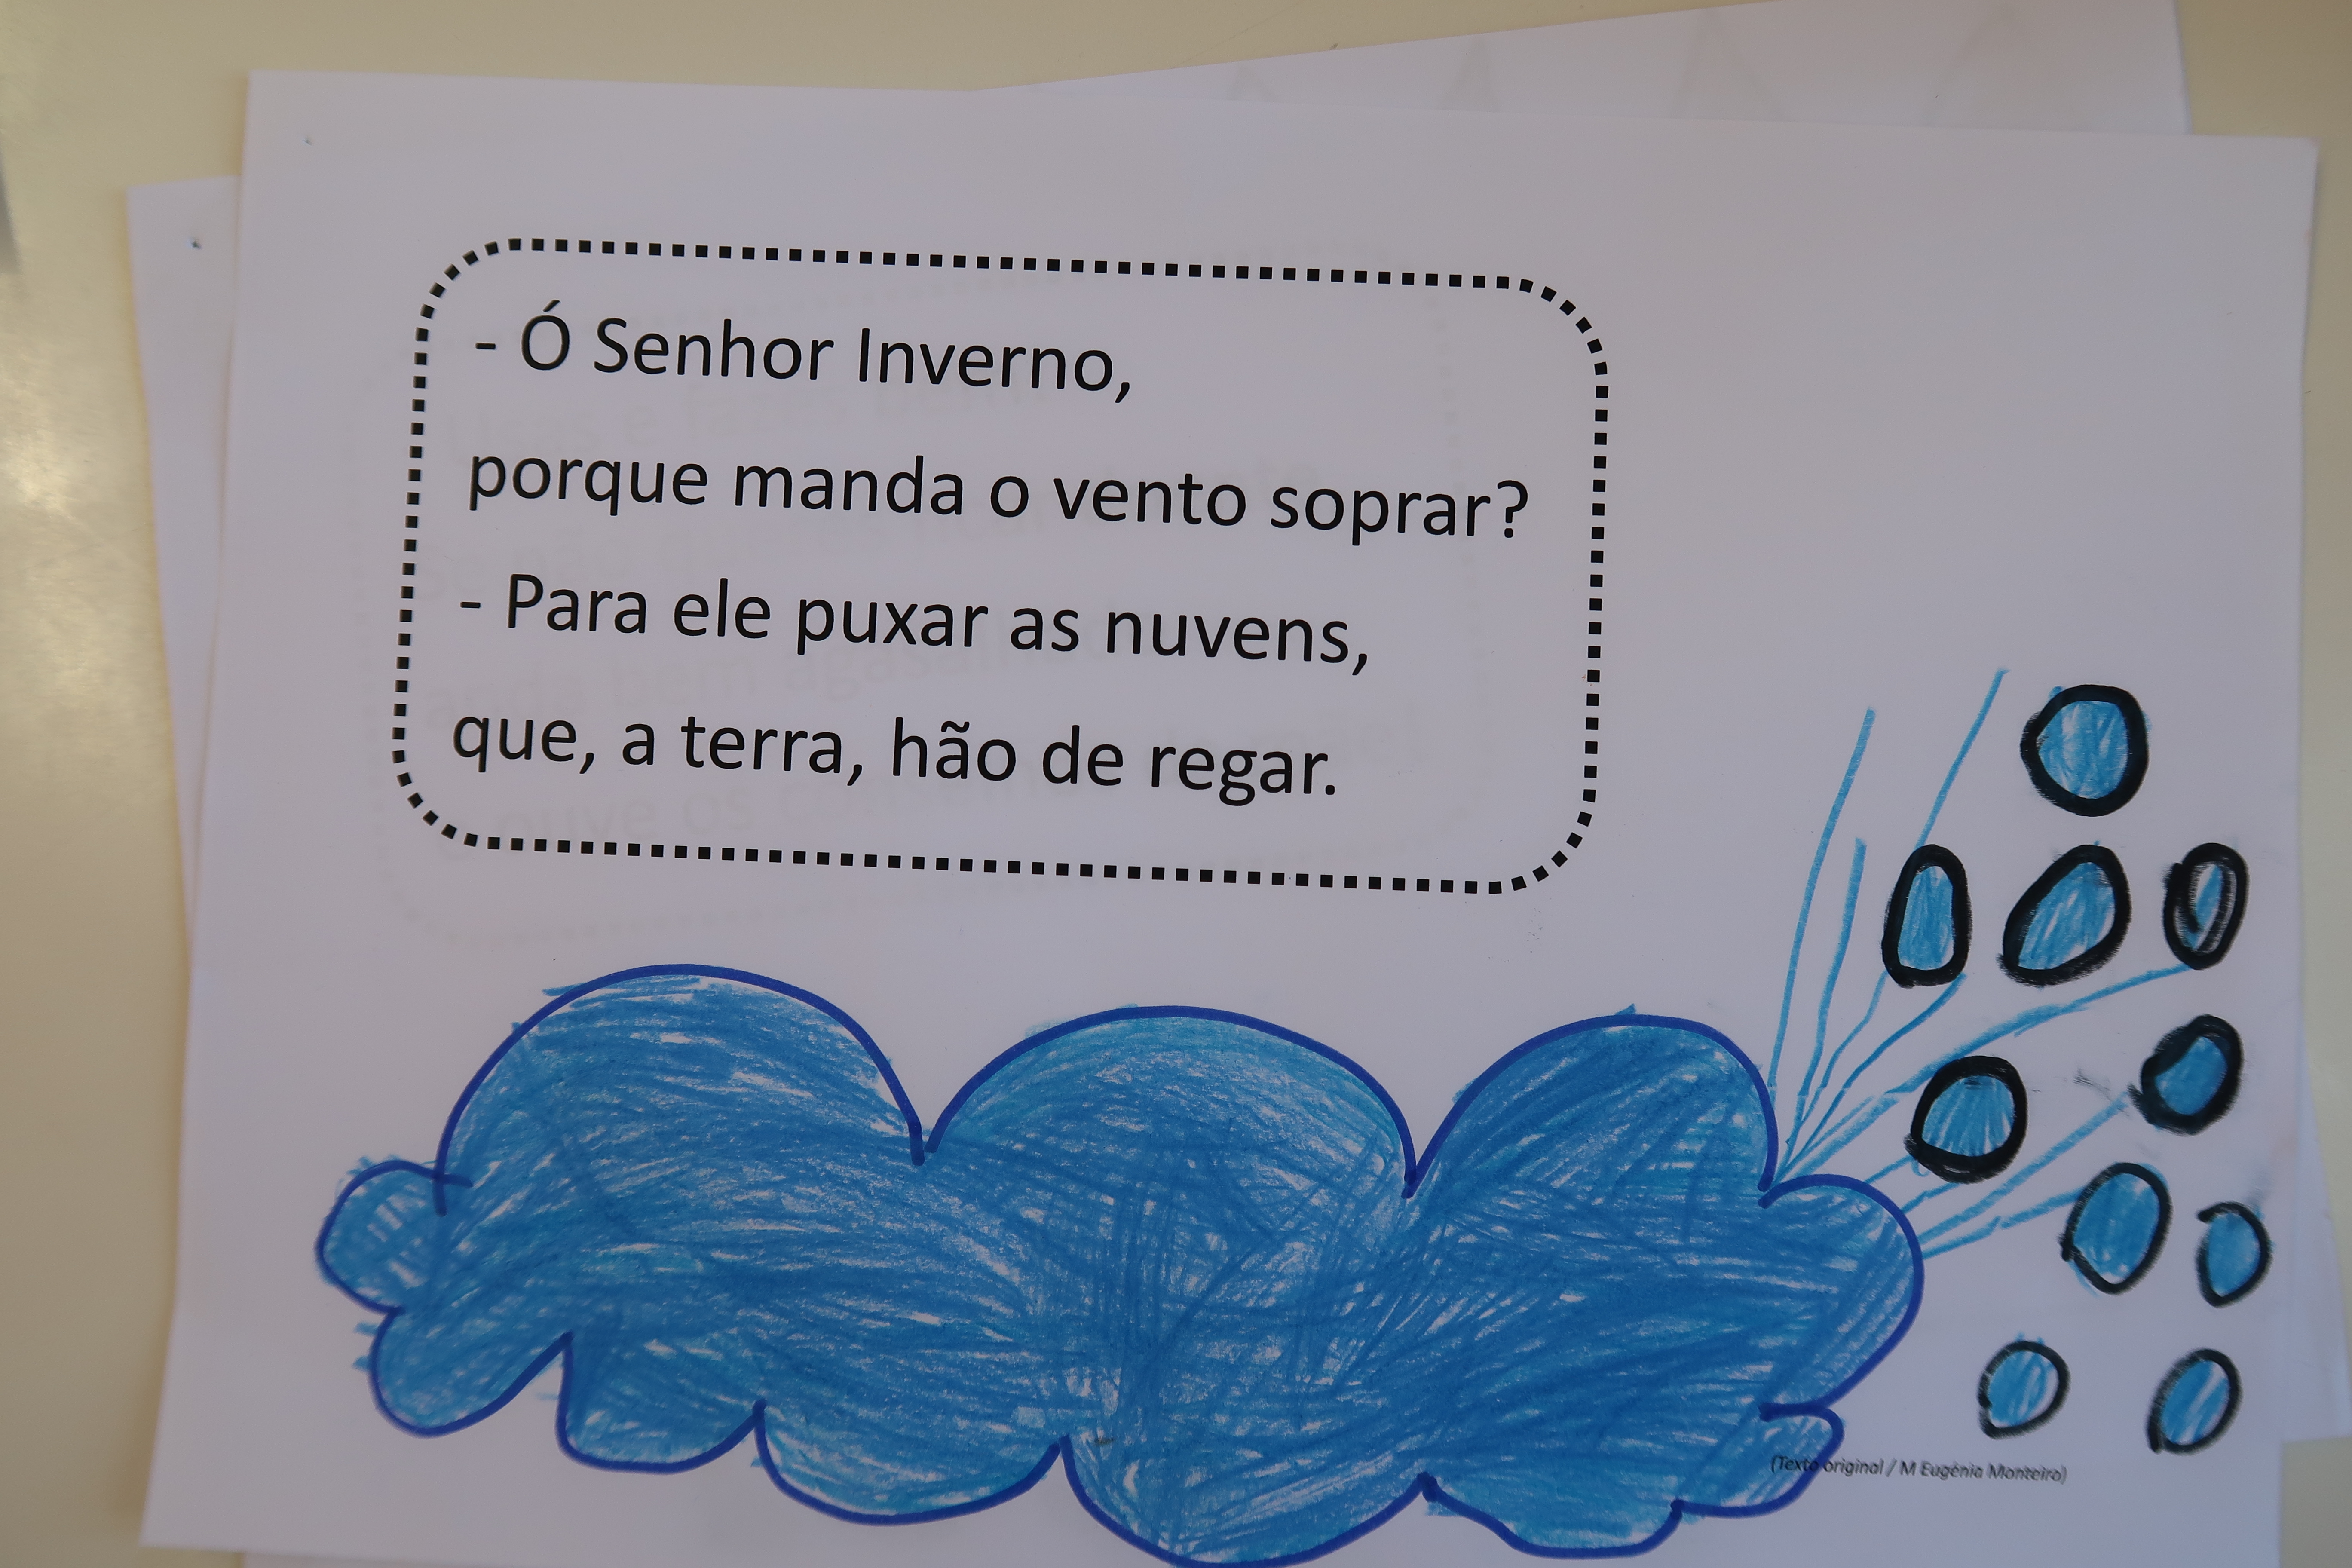 - Ó Senhor Inverno,
porque manda o vento soprar?
- Para ele puxar as nuvens,
que, a terra, hão de regar.
(Texto original / M Eugénia Monteiro)